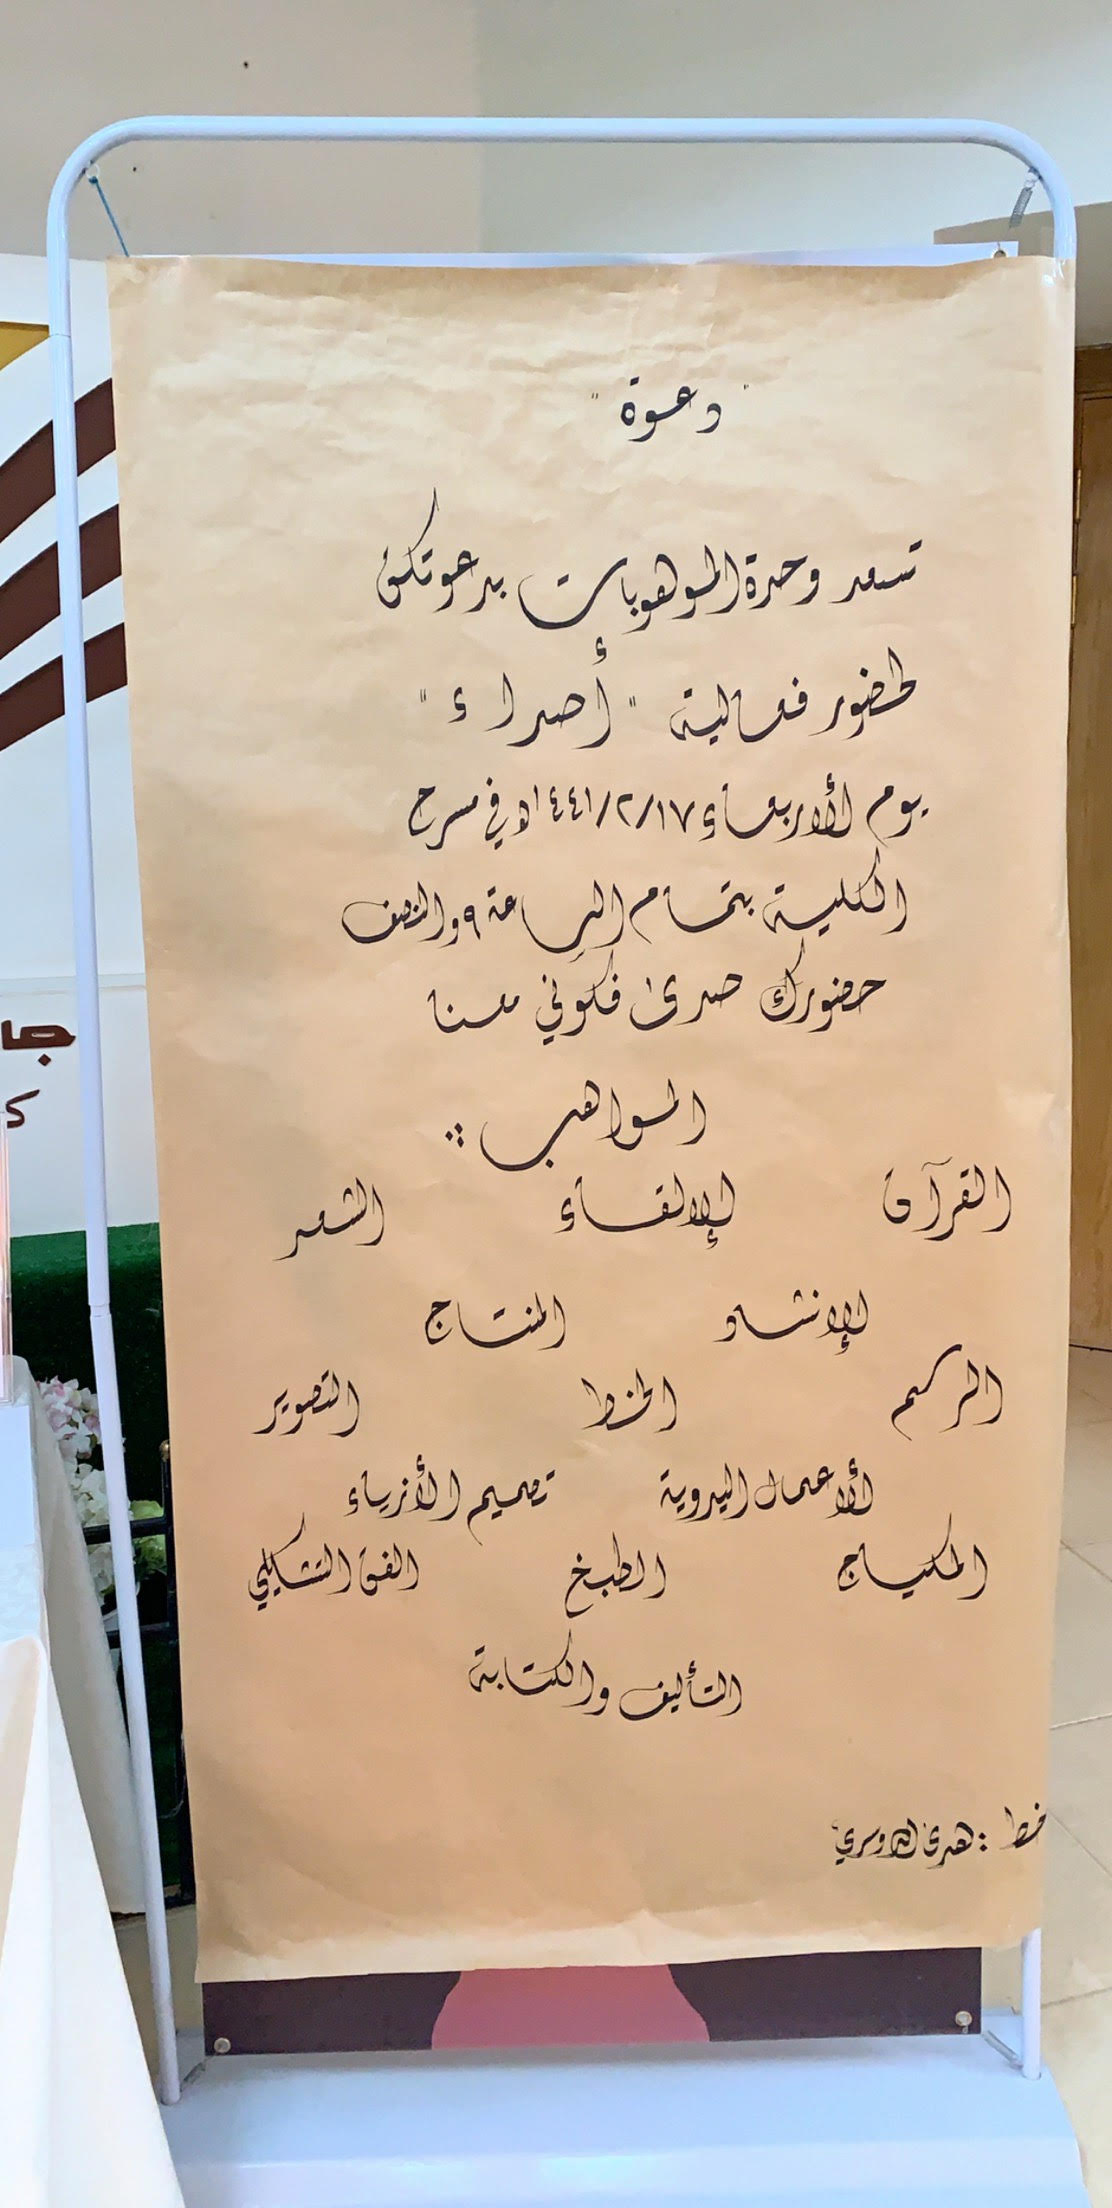 " دعوة "
تسعد وحدة الموهوبات بدعوتكن
لحضور فعالية " أصداء "
يوم الأربعاء ١٤٤١/٢/١٧هـ في مسرح
الكلية بتمام الساعة ٩ والنصف
حضورك صدى فكوني معنا
المواهب :
القرآن الإلقاء الشعر
الإنشاد المنتاج
الرسم الخط التصوير
الأعمال اليدوية تصميم الأزياء
المكياج الطبخ الفن التشكيلي
التأليف والكتابة
خط : هدى الدوسري
جا
ك